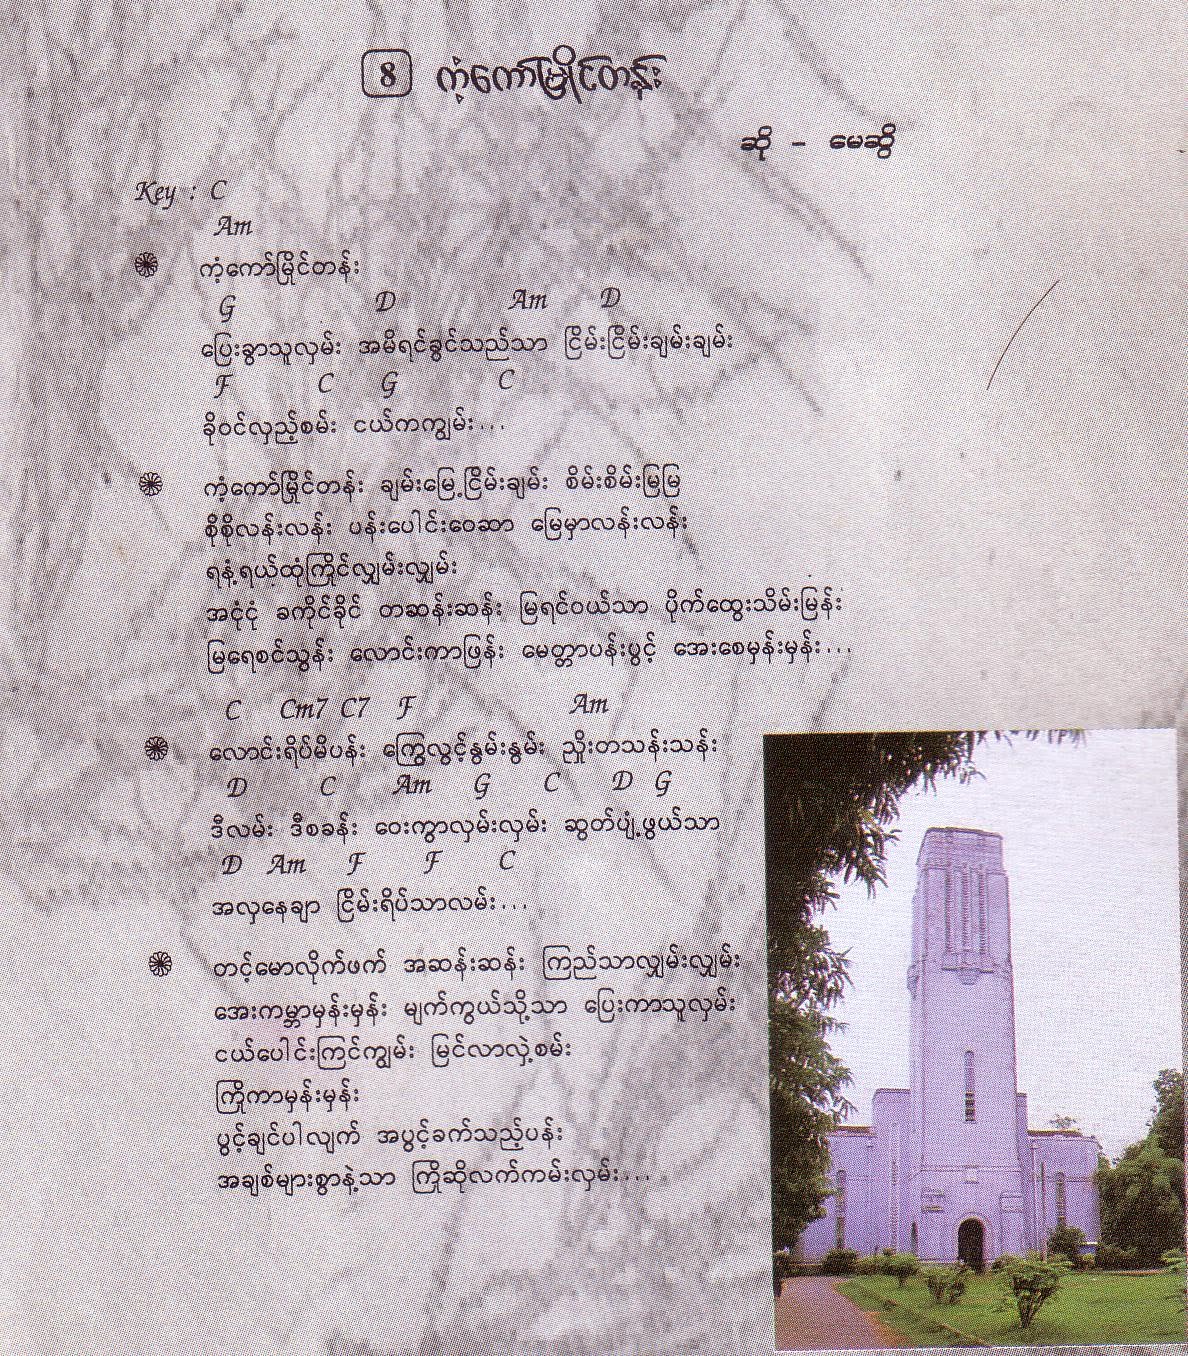 8 ကံ့ကော်မြိုင်တန်း
ဆို - မေဆွိ
Key : C
Am
ကံ့ကော်မြိုင်တန်း
G D Am D
ပြေးခွာသူလှမ်း အမိရင်ခွင်သည်သာ ငြိမ်းငြိမ်းချမ်းချမ်း
F C G C
ခိုဝင်လှည့်စမ်း ငယ်ကကျွမ်း...
ကံ့ကော်မြိုင်တန်း ချမ်းမြေ့ငြိမ်းချမ်း စိမ်းစိမ်းမြမြ
စိုစိုလန်းလန်း ပန်းပေါင်းဝေဆာ မြေမှာလန်းလန်း
ရနံ့ရယ်ထုံကြိုင်လျှမ်းလျှမ်း
အငုံငုံ ခကိုင်ခိုင် တဆန်းဆန်း မြရင်ဝယ်သာ ပိုက်ထွေးသိမ်းမြန်း
မြရေစင်သွန်း လောင်းကာဖြန်း မေတ္တာပန်းပွင့် အေးစေမှန်းမှန်း...
C Cm7 C7 F Am
လောင်းရိပ်မိပန်း ကြွေလွင့်နွမ်းနွမ်း ညှိုးတသန်းသန်း
D C Am G C D G
ဒီလမ်း ဒီစခန်း ဝေးကွာလှမ်းလှမ်း ဆွတ်ပျံ့ဖွယ်သာ
D Am F F C
အလှနေချာ ငြိမ်းရိပ်သာလမ်း...
တင့်မောလိုက်ဖက် အဆန်းဆန်း ကြည်သာလျှမ်းလျှမ်း
အေးကမ္ဘာမှန်းမှန်း မျက်ကွယ်သို့သာ ပြေးကာသူလှမ်း
ငယ်ပေါင်းကြင်ကျွမ်း မြင်လာလှဲ့စမ်း
ကြိုကာမှန်းမှန်း
ပွင့်ချင်ပါလျက် အပွင့်ခက်သည့်ပန်း
အချစ်များစွာနဲ့သာ ကြိုဆိုလက်ကမ်းလှမ်း...